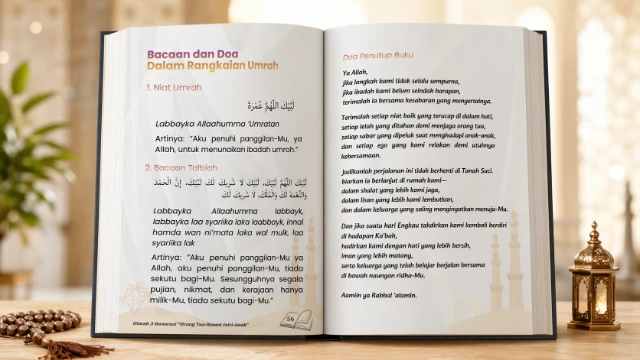 Bacaan dan Doa
Dalam Rangkaian Umroh
1. Niat Umrah
لَبَّيْكَ اللَّهُمَّ عُمْرَةً
Labbayka Allaahumma 'Umratan
Artinya: "Aku penuhi panggilan-Mu, ya
Allah, untuk menunaikan ibadah umroh."
2. Bacaan Talbiah
لَبَّيْكَ اللَّهُمَّ لَبَّيْكَ، لَبَّيْكَ لَا شَرِيْكَ لَكَ لَبَّيْكَ، إِنَّ الْحَمْدَ
وَالنِّعْمَةَ لَكَ وَالْمُلْكَ، لَا شَرِيْكَ لَكَ
Labbayka Allaahumma labbayk,
labbayka laa syariika laka laabbayk, innal
hamda wan ni'mata laka wal mulk, laa
syariika lak
Artinya: "Aku penuhi panggilan-Mu ya
Allah, aku penuhi panggilan-Mu, tiada
sekutu bagi-Mu. Sesungguhnya segala
pujian, nikmat, dan kerajaan hanya
milik-Mu, tiada sekutu bagi-Mu."
Umrah 3 Generasi "Orang Tua-Suami Istri-Anak"
56
Doa Penutup Buku
Ya Allah,
jika langkah kami tidak selalu sempurna,
jika ibadah kami belum seindah harapan,
terimalah ia bersama kesabaran yang menyertainya.
Terimalah setiap niat baik yang terucap di dalam hati,
setiap lelah yang ditahan demi menjaga orang tua,
setiap sabar yang dipeluk saat menghadapi anak-anak,
dan setiap ego yang kami relakan demi utuhnya
kebersamaan.
Jadikanlah perjalanan ini tidak berhenti di Tanah Suci.
biarkan ia berlanjut di rumah kami—
dalam shalat yang lebih kami jaga,
dalam lisan yang lebih kami lembutkan,
dan dalam keluarga yang saling mengingatkan menuju-Mu.
Dan jika suatu hari Engkau takdirkan kami kembali berdiri
di hadapan Ka'bah,
hadirkan kami dengan hati yang lebih bersih,
iman yang lebih matang,
serta keluarga yang telah belajar berjalan bersama
di bawah naungan ridha-Mu.
Aamiin ya Rabbal 'alamin.